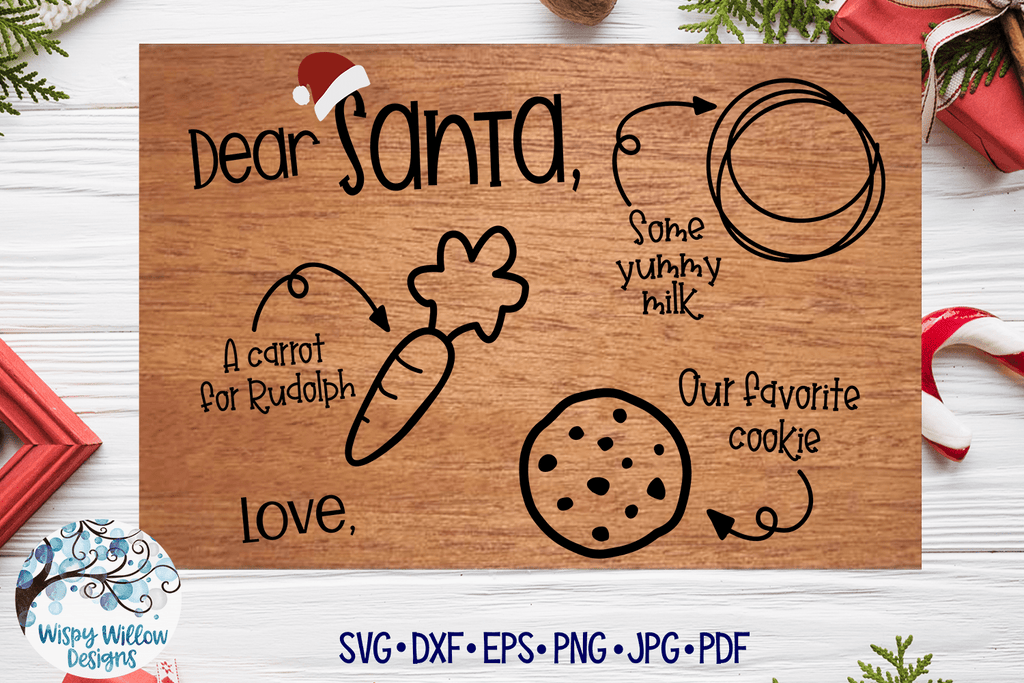 Dear Santa,
Some
yummy
milk
A carrot
for Rudolph
Our favorite
cookie
Love,
Wispy Willow
Designs
SVG•DXF•EPS•PNG•JPG•PDF